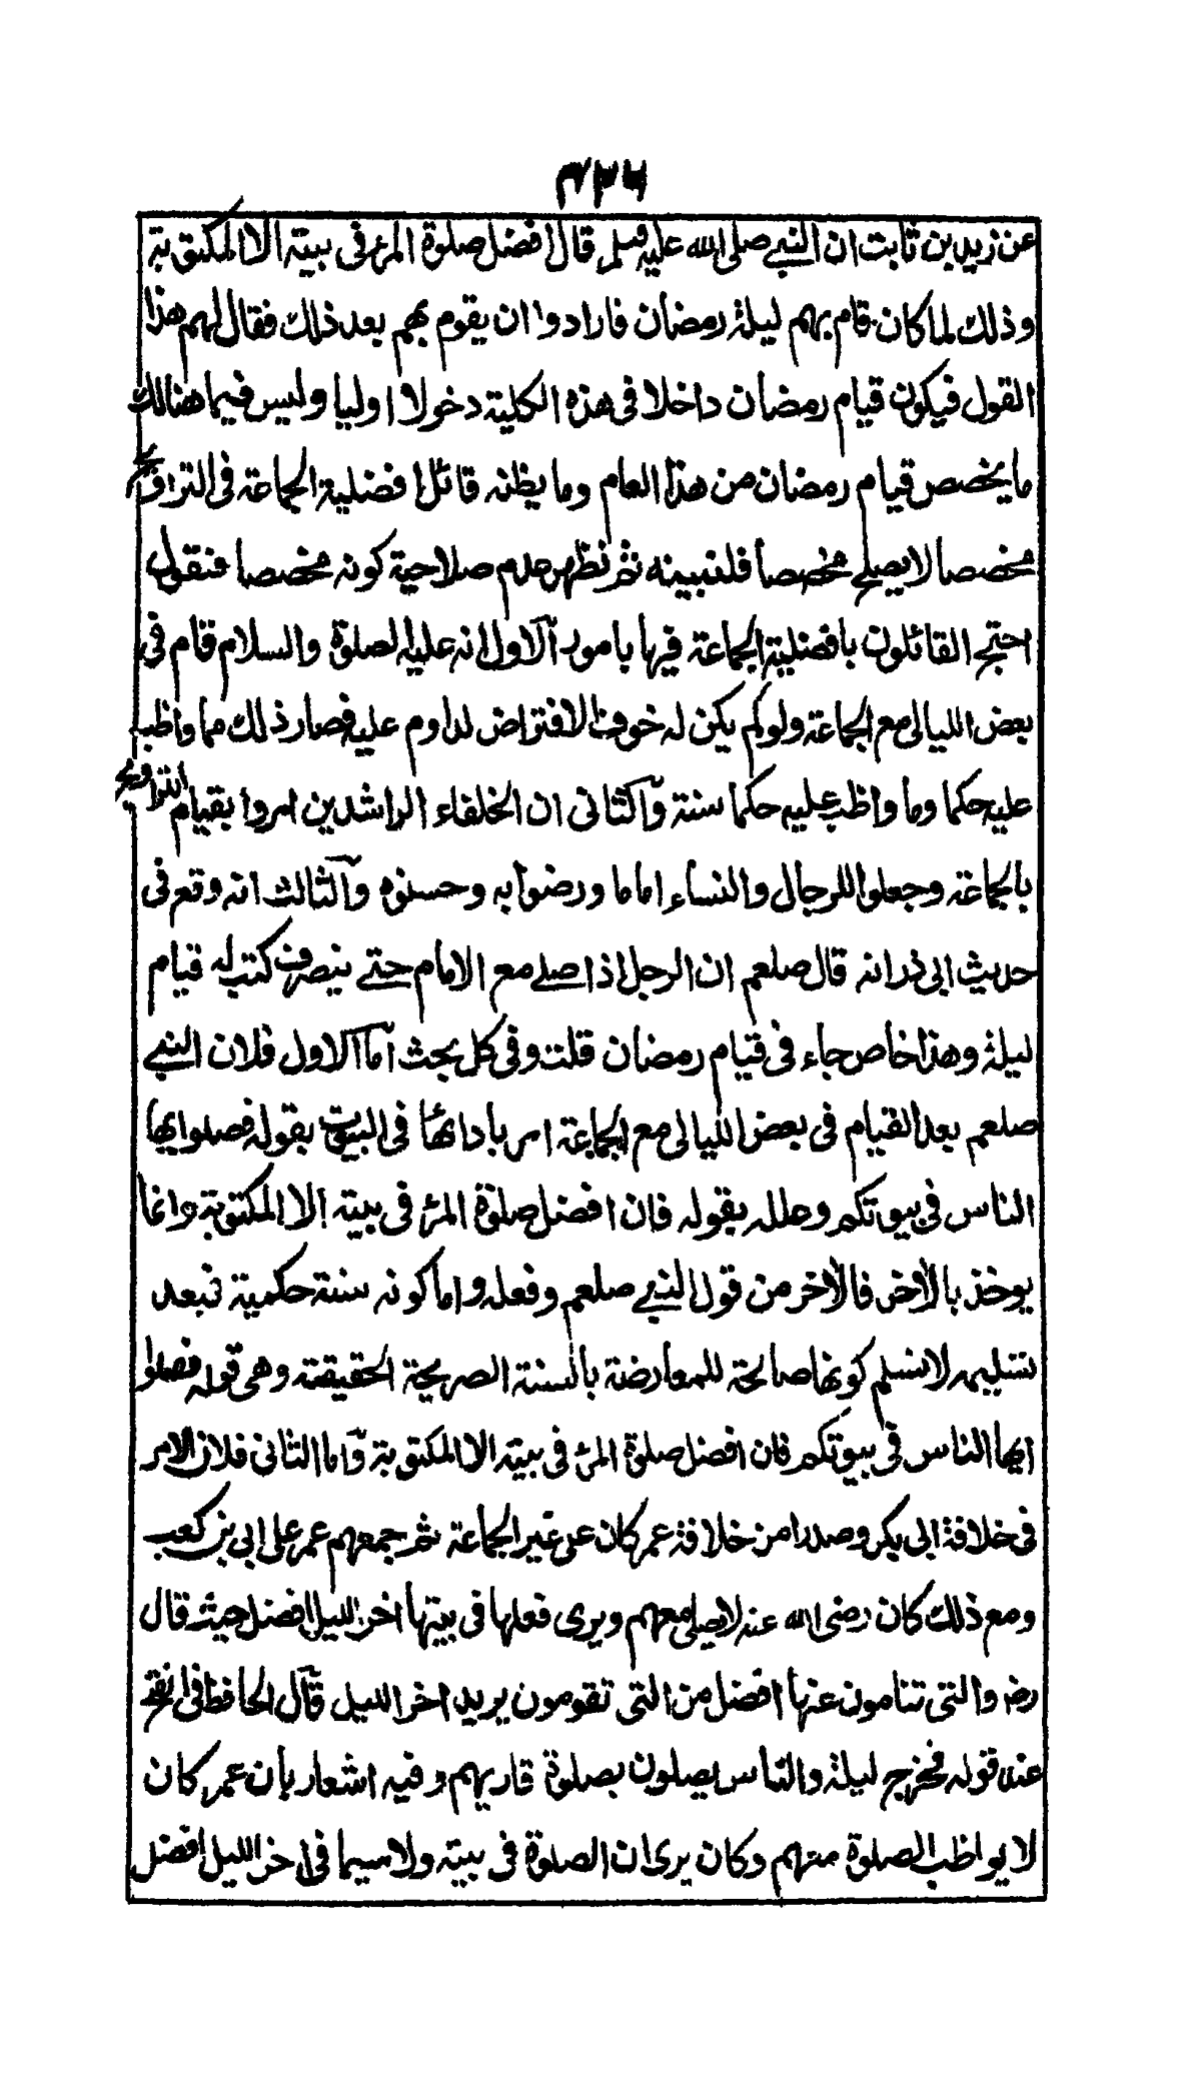 ۴۳۶
عن زيد بن ثابت ان النبي صلى الله عليه وسلم قال افضل صلوة المرء في بيته الا المكتوبة
وذلك لما كان قام بهم ليلة رمضان فارادوا ان يقوم بهم بعد ذلك فقال لهم هذا
القول فيكون قيام رمضان داخلا في هذه الكلية دخولا اوليا وليس فيما هنالك
ما يخصص قيام رمضان من هذا العام وما يظنه قائل افضلية الجماعة في التراويح
مخصصا لا يصلح مخصصا فلنبينه ثم نظهر عدم صلاحية كونه مخصصا فنقول
احتج القائلون بافضلية الجماعة فيها بامور آلاول انه عليه الصلوة والسلام قام في
بعض الليالي مع الجماعة ولو لم يكن له خوف الافتراض لداوم عليه فصار ذلك مما واظب
عليه حكما وما واظب عليه حكما سنة وآلثاني ان الخلفاء الراشدين امروا بقيام التراويح
بالجماعة وجعلوا للرجال والنساء اماما ورضوا به وحسنوه وآلثالث انه وقع في
حديث ابي ذر انه قال صلعم ان الرجل اذا صلے مع الامام حتے ينصرف كتب له قيام
ليلة وهذا خاص جاء في قيام رمضان قلت وفي كل بحث آما آلاول فلان النبي
صلعم بعد القيام في بعض الليالي مع الجماعة امر بادائها في البيوت بقوله فصلوا ايها
الناس في بيوتكم وعلله بقوله فان افضل صلوة المرء في بيته إلا المكتوبة وانما
يوخذ بالآخر فالآخر من قول النبي صلعم وفعله واما كونه سنة حكمية فبعد
تسليمه لا نسلم كونها صالحة للمعارضة بالسنة الصريحة الحقيقة وهي قوله فصلوا
ايها الناس في بيوتكم فان افضل صلوة المرء في بيته الا المكتوبة وآما الثاني فلان الامر
في خلافة ابي بكر وصدرا من خلافة عمر كان على غير الجماعة ثم جمعهم عمر على ابي بن كعب
ومع ذلك كان رضى الله عنه لا يصلى معهم ويرى فعلها في بيتها اخر الليل افضل حيث قال
رضه والتي تنامون عنها افضل من التي تقومون يريد اخر الليل قآل الحافظ في الفتح
عند قوله فخرج ليلة والناس يصلون بصلوة قاريهم وفيه اشعار بأن عمر كان
لا يواظب الصلوة معهم وكان يرى ان الصلوة في بيته ولا سيما في اخر الليل افضل